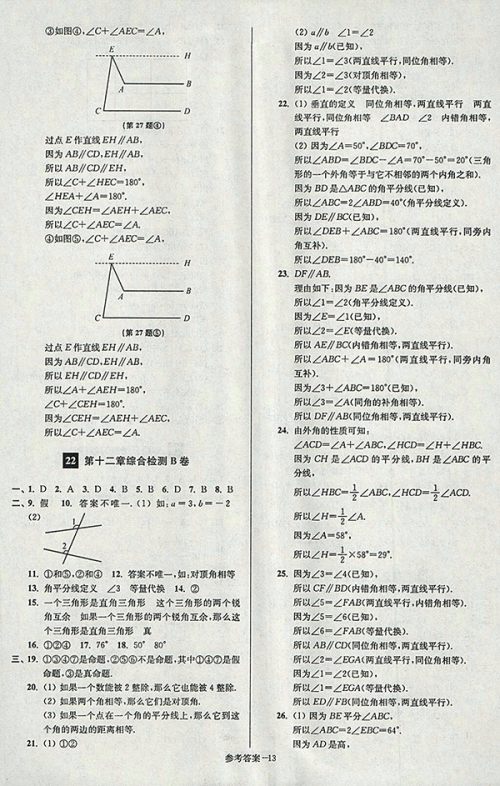 ③如图④,∠C+∠AEC=∠A,
E
H
A
B
C
D
(第 27 题④)
过点 E 作直线 EH∥AB,
因为 AB∥CD,EH∥AB,
所以 AB∥CD∥EH,
所以∠C+∠HEC=180°,
∠HEA+∠A=180°.
因为∠CEH=∠AEH+∠AEC,
所以∠C+∠AEC=∠A.
④如图⑤,∠C+∠AEC=∠A,
E
H
A
B
C
D
(第 27 题⑤)
过点 E 作直线 EH∥AB,
因为 AB∥CD,EH∥AB,
所以 EH∥CD∥EH,
所以∠A+∠AEH=180°,
∠C+∠CEH=180°.
因为∠CEH=∠AEH+∠AEC,
所以∠C+∠AEC=∠A.
22 第十二章综合检测 B 卷
一、1. D 2. A 3. D 4. B 5. B 6. D 7. B 8. B
二、9. 假 10. 答案不唯一.(1) 如:a=3,b=-2
(2)
1
2
11. ①和⑤,②和④ 12. 答案不唯一,如:对顶角相等
13. 角平分线定义 ∠3 等量代换 14. ②
15. 一个三角形是直角三角形 这个三角形的两个锐
角互余 如果一个三角形的两个锐角互余,那么这
个三角形是直角三角形 真
16. ①②④ 17. 76° 18. 50° 80°
三、19. ①③④⑦是命题,②⑤⑥不是命题,其中①④⑦是假
命题,③是真命题.
20. (1) 如果一个数能被 2 整除,那么它也能被 4 整除.
(2) 如果两个角相等,那么它们是对顶角.
(3) 如果一个点在一个角的平分线上,那么它到这
个角的两边的距离相等.
21. (1) ①②
(2) a∥b ∠1=∠2
因为 a∥b(已知),
所以∠1=∠3(两直线平行,同位角相等).
因为∠2=∠3(对顶角相等),
所以∠1=∠2(等量代换).
22. (1) 垂直的定义 同位角相等,两直线平行 两直
线平行,同位角相等 ∠BAD ∠2 内错角相等,
两直线平行
(2) 因为∠A=50°,∠BDC=70°,
所以∠ABD=∠BDC-∠A=70°-50°=20°(三角
形的一个外角等于与它不相邻的两个内角之和).
因为 BD 是△ABC 的角平分线(已知),
所以∠ABC=2∠ABD=40°(角平分线定义).
因为 DE∥BC(已知),
所以∠DEB+∠ABC=180°(两直线平行,同旁内
角互补).
所以∠DEB=180°-40°=140°.
23. DF∥AB.
理由如下:因为 BE 是∠ABC 的角平分线(已知),
所以∠1=∠2(角平分线定义).
因为∠E=∠1(已知),
所以∠2=∠E(等量代换).
所以 AE∥BC(内错角相等,两直线平行).
所以∠ABC+∠A=180°(两直线平行,同旁内角
互补).
因为∠3+∠ABC=180°(已知),
所以∠3=∠A(同角的补角相等).
所以 DF∥AB(同位角相等,两直线平行).
24. 由外角的性质可知:
∠ACD=∠A+∠ABC,∠HCD=∠H+∠HBC.
因为 CH 是∠ACD 的平分线,BH 是∠ABC 的平
分线,
所以∠HBC=1/2∠ABC,∠HCD=1/2∠ACD.
所以∠H=1/2∠A.
因为∠A=58°,
所以∠H=1/2×58°=29°.
25. 因为∠3=∠4(已知),
所以 CF∥BD(内错角相等,两直线平行).
所以∠5=∠FAB(两直线平行,内错角相等).
因为∠5=∠6(已知),
所以∠6=∠FAB(等量代换).
所以 AB∥CD(同位角相等,两直线平行).
所以∠2=∠EGA(两直线平行,同位角相等).
因为∠1=∠2(已知),
所以∠1=∠EGA(等量代换).
所以 ED∥FB(同位角相等,两直线平行).
26. (1) 因为 BE 平分∠ABC,
所以∠ABC=2∠EBC=64°.
因为 AD 是高,
参考答案—13